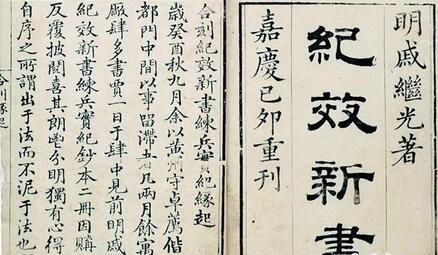 明戚繼光著
紀效新書
嘉慶己卯重刊
合刻紀效新書練兵實紀緣起
歲癸酉秋九月余以黃州守卓薦偕
都門中間以事留滯者凡兩月餘寓
廠肆多書賈一日于肆中見前明戚
紀效新書練兵實紀鈔本二冊因購
反覆披閱喜其朗鬯分明獨有心得
自序之所謂出于法而不泥于法也